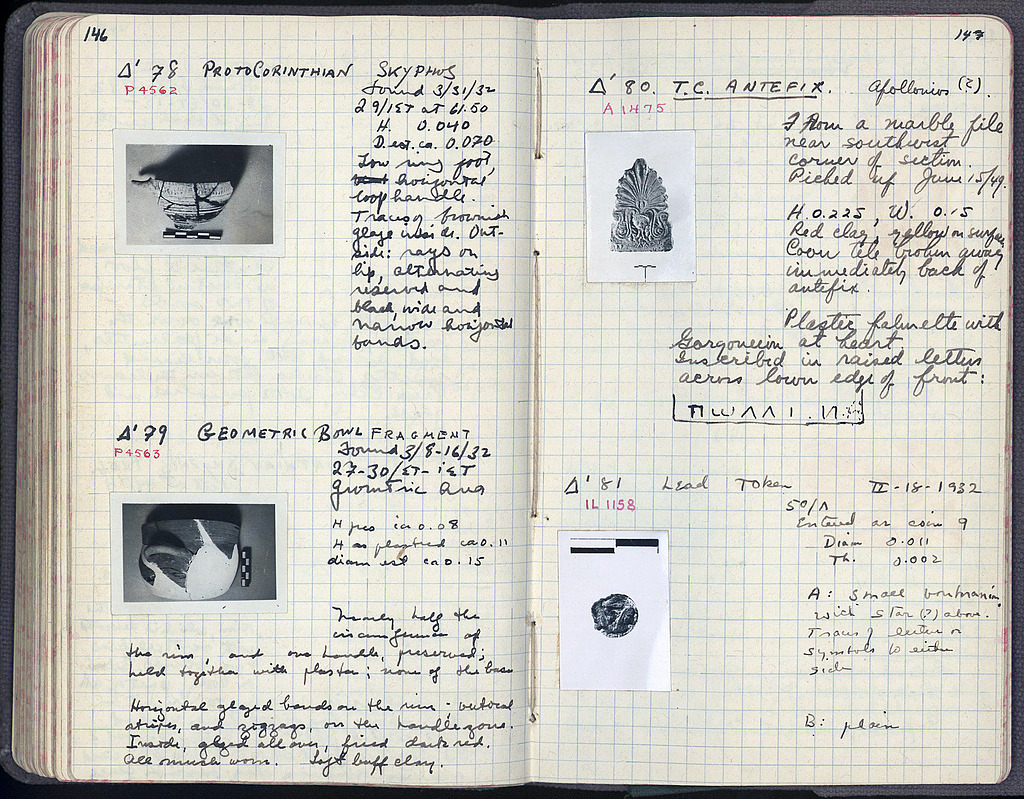 146
Δ' 78 PROTOCORINTHIAN SKYPHOS
P 4562
Found 3/31/32
29/ΙΣΤ at 61.50
H. 0.040
D. est. ca. 0.070
Low ring foot,
horizontal
loop handle.
Traces of brownish
glaze inside. Out-
side: rays on
lip, alternating
reserved and
black, wide and
narrow horizontal
bands.
Δ' 79 GEOMETRIC BOWL FRAGMENT
P 4563
Found 3/8-16/32
27-30/ΣΤ-ΙΣΤ
Geometric Area
H pres ca 0.08
H as plastered ca 0.11
diam est ca 0.15
Nearly half the
circumference of
the rim, and one handle, preserved;
held together with plaster; none of the base
Horizontal glazed bands on the rim; vertical
stripes, and zigzags, on the handle zone.
Inside, glazed all over, fired dark red.
All much worn. Soft buff clay.
147
Δ' 80. T.C. ANTEFIX. Apollonios (?).
A 1475
From a marble pile
near southwest
corner of section.
Picked up June 15/49.
H. 0.225, W. 0.15
Red clay, yellow on surface
Cover tile broken away
immediately back of
antefix.
Plastic palmette with
Gorgoneion at heart
Inscribed in raised letters
across lower edge of front:
Π Ω Λ Λ Ι . Ν
Δ' 81 Lead Token II-18-1932
IL 1158
50/Λ
Entered as coin 9
Diam 0.011
Th. 0.002
A: small
with star (?) above.
Traces of letter or
symbols to either
side
B: plain